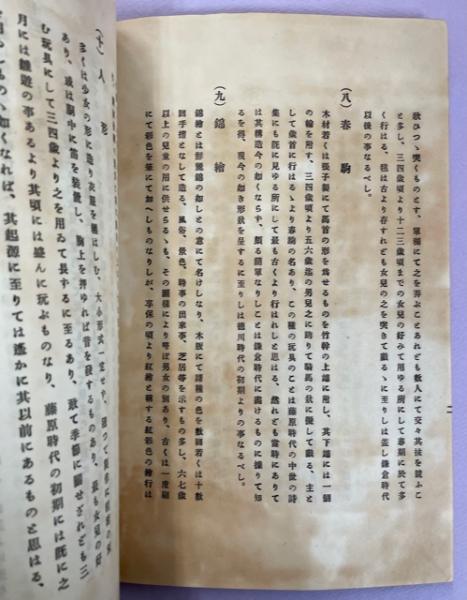 歌ひつゝ突くものとす、單獨にて之を弄ぶことあれども數人にて交々其技を競ふこ
と多し、三四歳頃より十二三歳頃までの女兒の好みて用ゆる所にして春期に於て多
く行はる、毬は古より存すれども女兒の之を突きて戯るゝに至りしは蓋し鎌倉時代
以後の事なるべし。
(八) 春駒
木材若くは張子製にて馬首の形を爲せるものを竹幹の上端に附し、其下端には一個
の輪を附す、三四歳頃より五六歳迄の男兒之に跨りて騎馬の狀に擬して戯る、主と
して歳首に行はるゝより春駒の名あり、この種の玩具のことは藤原時代の中世の詩
集にも既に見ゆる所にして最も古くより行はれしと思はる、然れども當時にありて
は其構造今の如くならず、頗る簡單なりしことは鎌倉時代に畵けるものに據りて知
るを得、現今の如き形狀を呈するに至りしは德川時代の初期よりの事なるべし。
(九) 錦繪
錦繪とは彩畫錦の如しとの意にて名けしなり、木版にて諸種の色を數回若くは十數
回手摺となして造る、風俗、景色、時事の出來事、芝居等を示すもの多し、六七歳
以上の兒童の用に供せらるゝも、其の圖樣により男女の別あり、古くは一度刷
にて彩色を筆にて加へしものなりしが、享保の頃より紅繪と稱する紅彩色の
(十) 人形
多くは少女の形に造り衣服を纏はしむ、大小形式一定せず、
あり、或は胴中に笛を裝置し、胸上を押ゆれば音を發するものあり、最も女兒の好
む玩具にして三四歳より之を用ゐて長ずるに至るあり、敢て季節に關せざれども三
月には雛遊の事あるより其頃には盛んに玩ぶものなり、藤原時代の初期には既に之
如くなれば、其起源に至りては遙かに其以前にあるものと思はる、
二